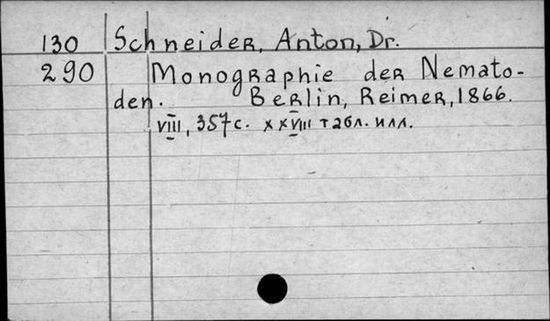 130 Schneider, Anton, Dr.
290 Monographie der Nemato-
den. Berlin, Reimer, 1866.
VIII, 357 с. XXVIII табл. илл.